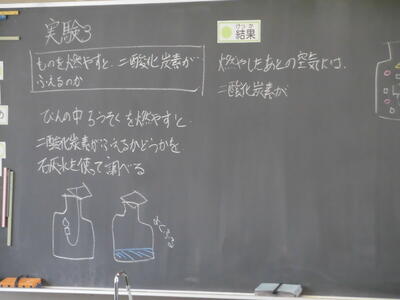 実験3
ものを燃やすと、二酸化炭素が
ふえるのか
びんの中ろうそくを燃やすと、
二酸化炭素がふえるかどうかを
石灰水を使って調べる
けっか
結果
燃やしたあとの空気には、
二酸化炭素が